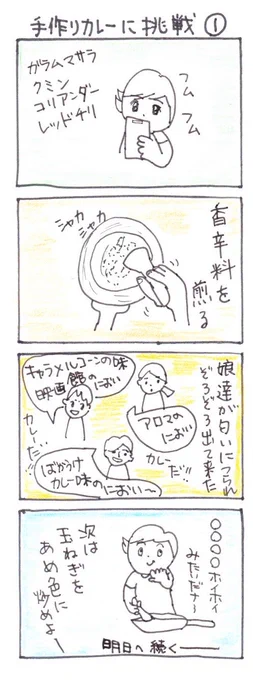 手作りカレーに挑戦①
ガラムマサラ
クミン
コリアンダー
レッドチリ
フム
フム
香辛料を
煎る
シャカ
シャカ
娘達が匂いにつられ
ぞろぞろ出て来た
キャラメルコーンの味
映画館のにおい
カレーだ…!!
アロマの
におい
カレーだ…!!
ばかうけ
カレー味のにおい〜
〇〇〇〇ホイホイ
みたいだナー
次は
玉ねぎを
あめ色に
炒めよー
明日へ続く――